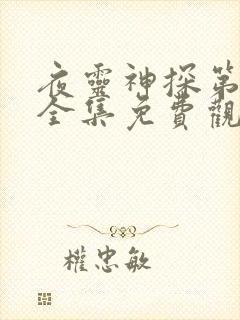 夜靈神探第
全集免費觀
權忠敏